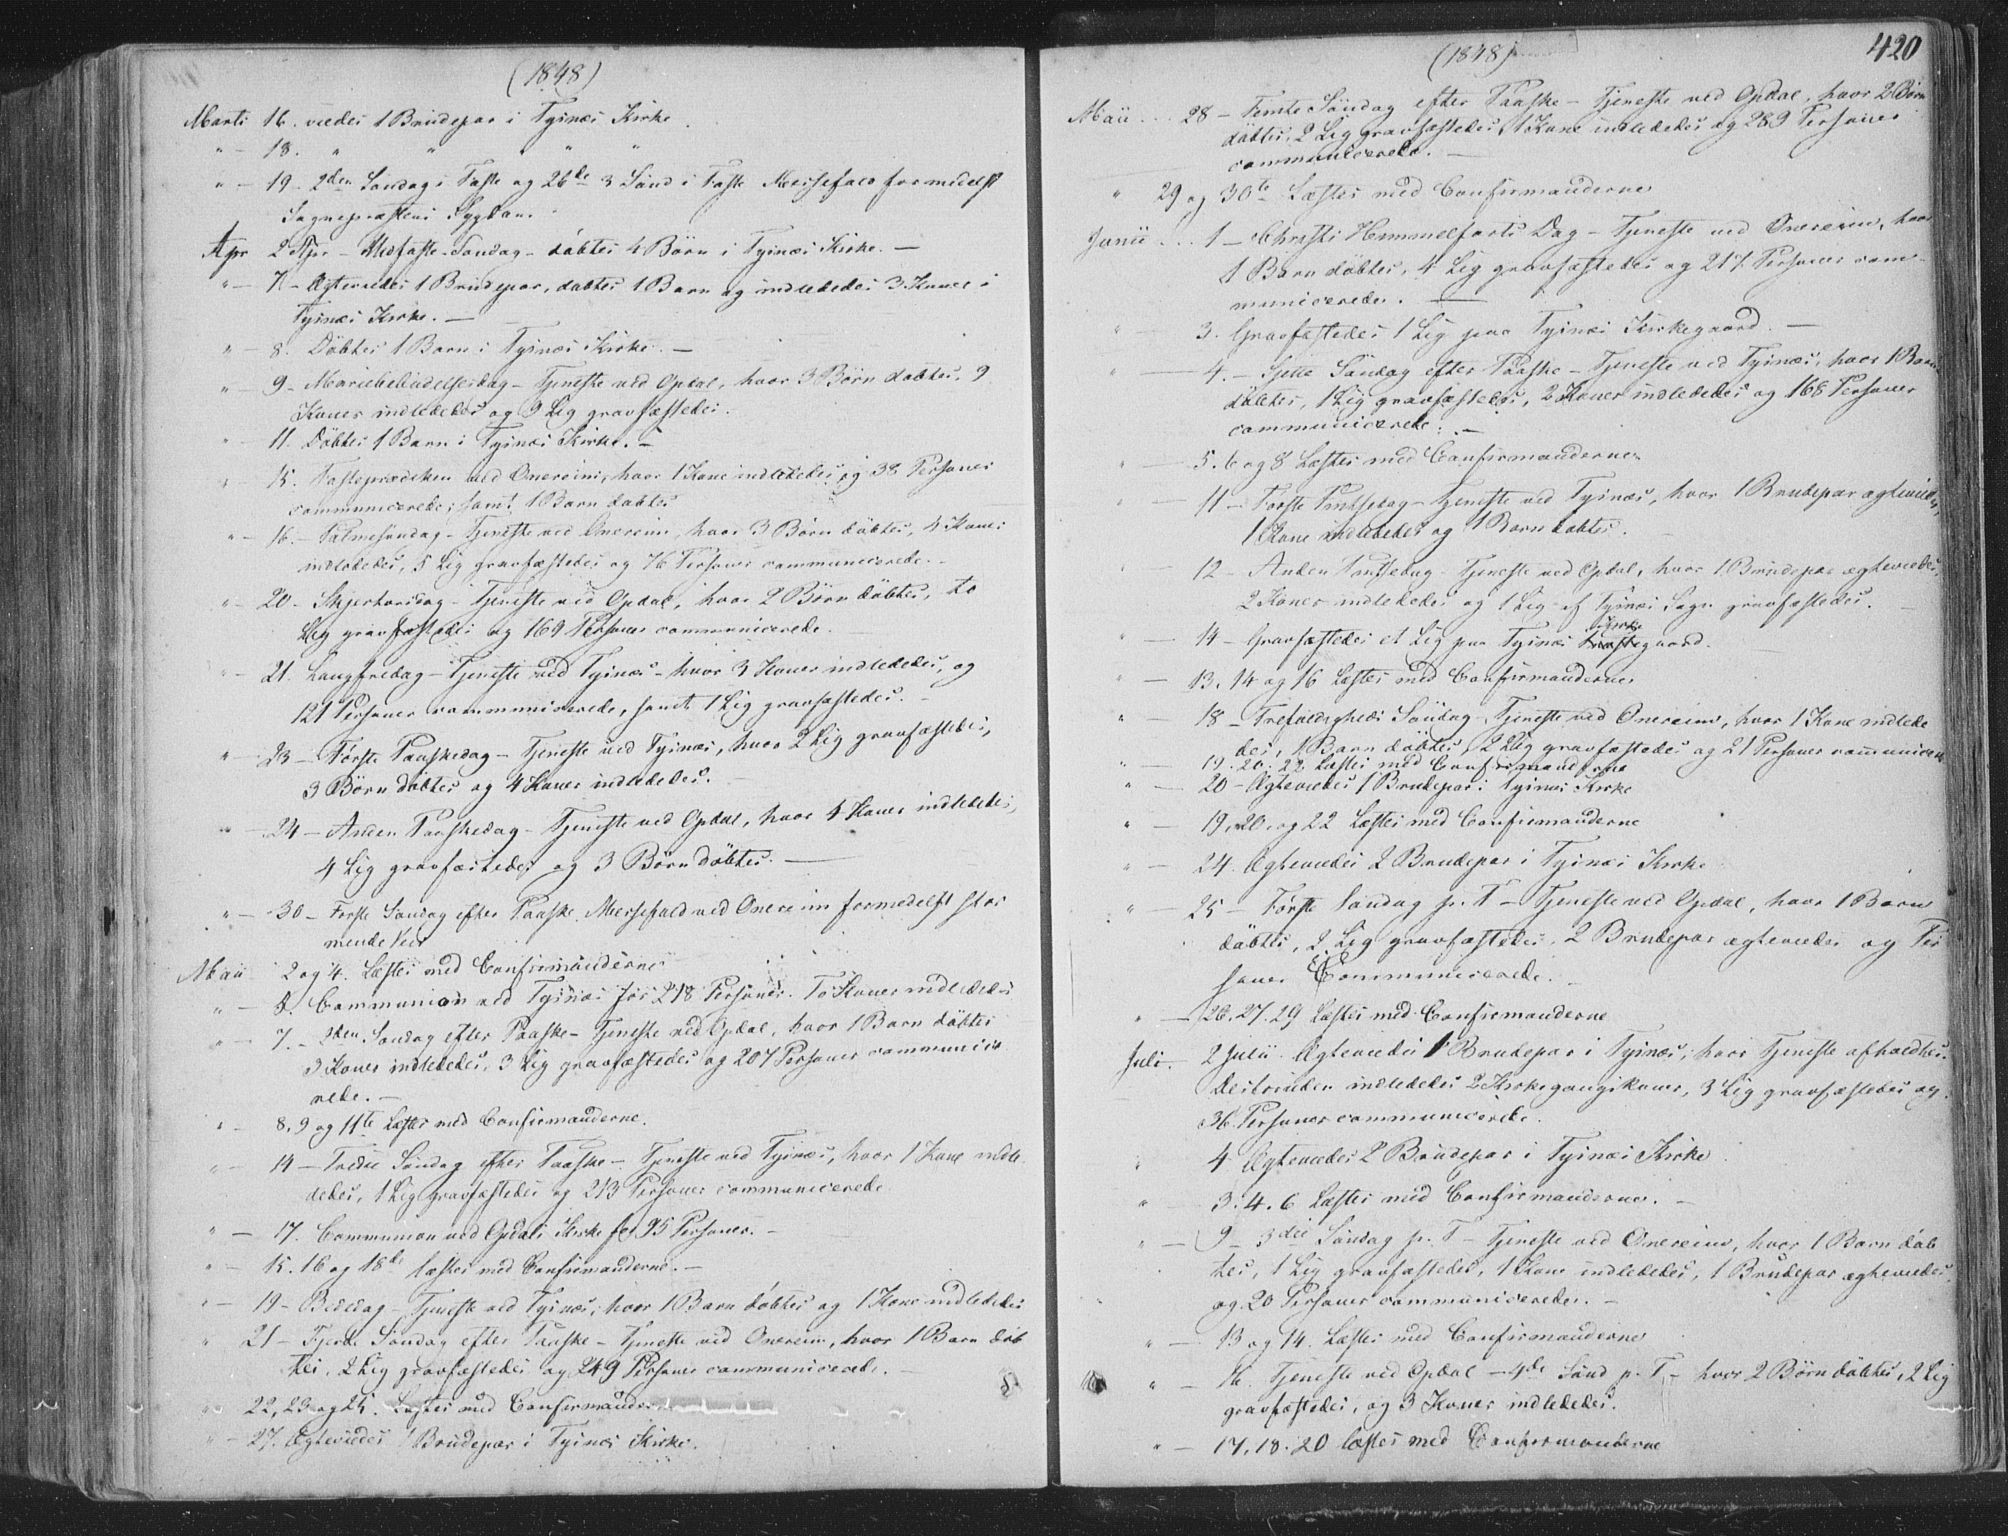 (1848)
Marti 16. viedes 1 Brudepar i Tysnæs Kirke.
" — 18. " " " "
" — 19 – 2den Søndag i Faste og 26de 3 Sønd i Faste Messefald formedelst
Sognepræstens Sygdom.
Apr 2 Apr – Midfaste-Søndag – døbtes 4 Børn i Tysnæs Kirke. —
" — 7 – Ægteviedes 1 Brudepar, døbtes 1 Barn og indlededes 3 Koner i
Tysnæs Kirke. —
" — 8. Døbtes 1 Barn i Tysnæs Kirke. —
" 9 – Mariæbebudelsesdag – Tjeneste ved Opdal, hvor 3 Børn døbtes, 9
Koner indlededes og 9 Lig gravfæstedes.
" 11. Døbtes 1 Barn i Tysnæs Kirke. —
" 15. Fasteprædiken ved Onereim, hvor 1 Kone indlededes og 38 Personer
communicerede; samt 1 Barn døbtes
" – 16. – Palmesøndag – Tjeneste ved Onereim, hvor 3 Børn døbtes, 4 Koner
indlededes, 5 Lig gravfæstedes og 76 Personer communicerede. –
" – 20 – Skjertorsdag – Tjeneste ved Opdal, hvor 2 Børn døbtes, to
Lig gravfæstedes og 169 Personer communicerede.
" – 21. Langfredag – Tjeneste ved Tysnæs – hvor 3 Koner indlededes, og
121 Personer communicerede, samt 1 Lig gravfæstedes. –
" – 23 – Første Paaskedag – Tjeneste ved Tysnæs, hvor 2 Lig gravfæstedes,
3 Børn døbtes og 4 Koner indlededes. –
" – 24 – Anden Paaskedag – Tjeneste ved Opdal, hvor 4 Koner indlededes,
4 Lig gravfæstedes og 3 Børn døbtes. —
" – 30 – Første Søndag efter Paaske Messefald ved Onereim formedelst stor
mende Veir
Maii 2 og 4. Læstes med Confirmanderne
" – 5. Communion ved Tysnæs for 218 Personer. To Koner indlededes
" – 7. – 2den Søndag efter Paaske – Tjeneste ved Opdal, hvor 1 Barn døbtes
3 Koner indlededes, 3 Lig gravfæstedes og 207 Personer communice
rede. —
" – 8, 9 og 11te Læstes med Confirmanderne.
" – 14 – Tredie Søndag efter Paaske – Tjeneste ved Tysnæs, hvor 1 Kone indle
dedes, 1 Lig gravfæstedes og 213 Personer communicerede
" — 17. Communion ved Opdals Kirke for 95 Personer. –
" – 15. 16 og 18de læstes med Confirmanderne. –
" – 19 – Bededag – Tjeneste ved Tysnæs, hvor 1 Barn døbtes og 1 Kone indlededes
" 21 – Fjerde Søndag efter Paaske – Tjeneste ved Onereim, hvor 1 Barn døb
tes, 2 Lig gravfæstedes og 249 Personer communicerede. –
" – 22, 23 og 25. Læstes med Confirmander
" – 27. Ægteviedes 1 Brudepar i Tysnæs Kirke.
(1848)
420
Maii ... 28 – Femte Søndag efter Paaske – Tjeneste ved Opdal, hvor 2 Børn
døbtes, 2 Lig gravfæstedes, 1 Kone indlededes og 289 Personer
communicerede. —
" 29 og 30te Læstes med Confirmanderne
Junii ... 1 – Christi Himmelfarts Dag – Tjeneste ved Onereim, hvor
1 Barn døbtes, 4 Lig gravfæstedes og 217 Personer com-
municerede. —
" — 3. Gravfæstedes 1 Lig paa Tysnæs Kirkegaard. —
" — 4. – Sjette Søndag efter Paaske – Tjeneste ved Tysnæs, hvor 1 Barn
døbtes, 1 Lig gravfæstedes, 2 Koner indlededes og 168 Personer
communicerede. –
" — 5. 6 og 8 Læstes med Confirmanderne
" — 11 – Første Pintsedag – Tjeneste ved Tysnæs, hvor 1 Brudepar ægteviedes,
1 Kone indlededes og 1 Barn døbtes.
" — 12 – Anden Pintsedag – Tjeneste ved Opdal, hvor 1 Brudepar ægteviedes,
2 Koner indlededes og 1 Lig af Tysnæs Sogn gravfæstedes. –
" — 14 – Gravfæstedes et Lig paa Tysnæs Kirkegaard.
" — 13, 14 og 16 Læstes med Confirmanderne
" — 18 – Trefoldigheds Søndag – Tjeneste ved Onereim, hvor 1 Kone indlede
des, 1 Barn døbtes, 2 Lig gravfæstedes og 21 Personer communicere
" — 19. 20. 22 Læstes med Confirmanderne
" — 20 – Ægteviedes 1 Brudepar i Tysnæs Kirke
" — 19, 20 og 22 Læstes med Confirmanderne
" — 24. Ægteviedes 2 Brudepar i Tysnæs Kirke
" — 25 – Første Søndag p. T – Tjeneste ved Opdal, hvor 1 Barn
døbtes, 2 Lig gravfæstedes, 2 Brudepar ægteviedes og Per
soner Communicerede. –
" — 26. 27. 29 Læstes med Confirmanderne
Juli. 2 Julii. Ægteviedes 1 Brudepar i Tysnæs, hvor Tjeneste afholdtes.
Desforuden indlededes 2 Kirkegangskoner, 3 Lig gravfæstedes og
36 Personer communicerede.
" 4 Ægteviedes 2 Brudepar i Tysnæs Kirke
" — 3. 4. 6 Læstes med Confirmanderne. –
" — 9 – 3die Søndag p. T – Tjeneste ved Onereim, hvor 1 Barn døb
tes, 1 Lig gravfæstedes, 1 Kone indlededes, 1 Brudepar ægteviedes,
og 20 Personer communicerede. –
" — 13 og 14. Læstes med Confirmanderne
" — 16. Tjeneste ved Opdal – 4de Sønd p. T – hvor 2 Børn døbtes, 2 Lig
gravfæstedes, og 3 Koner indlededes.
" — 17. 18. 20 læstes med Confirmanderne